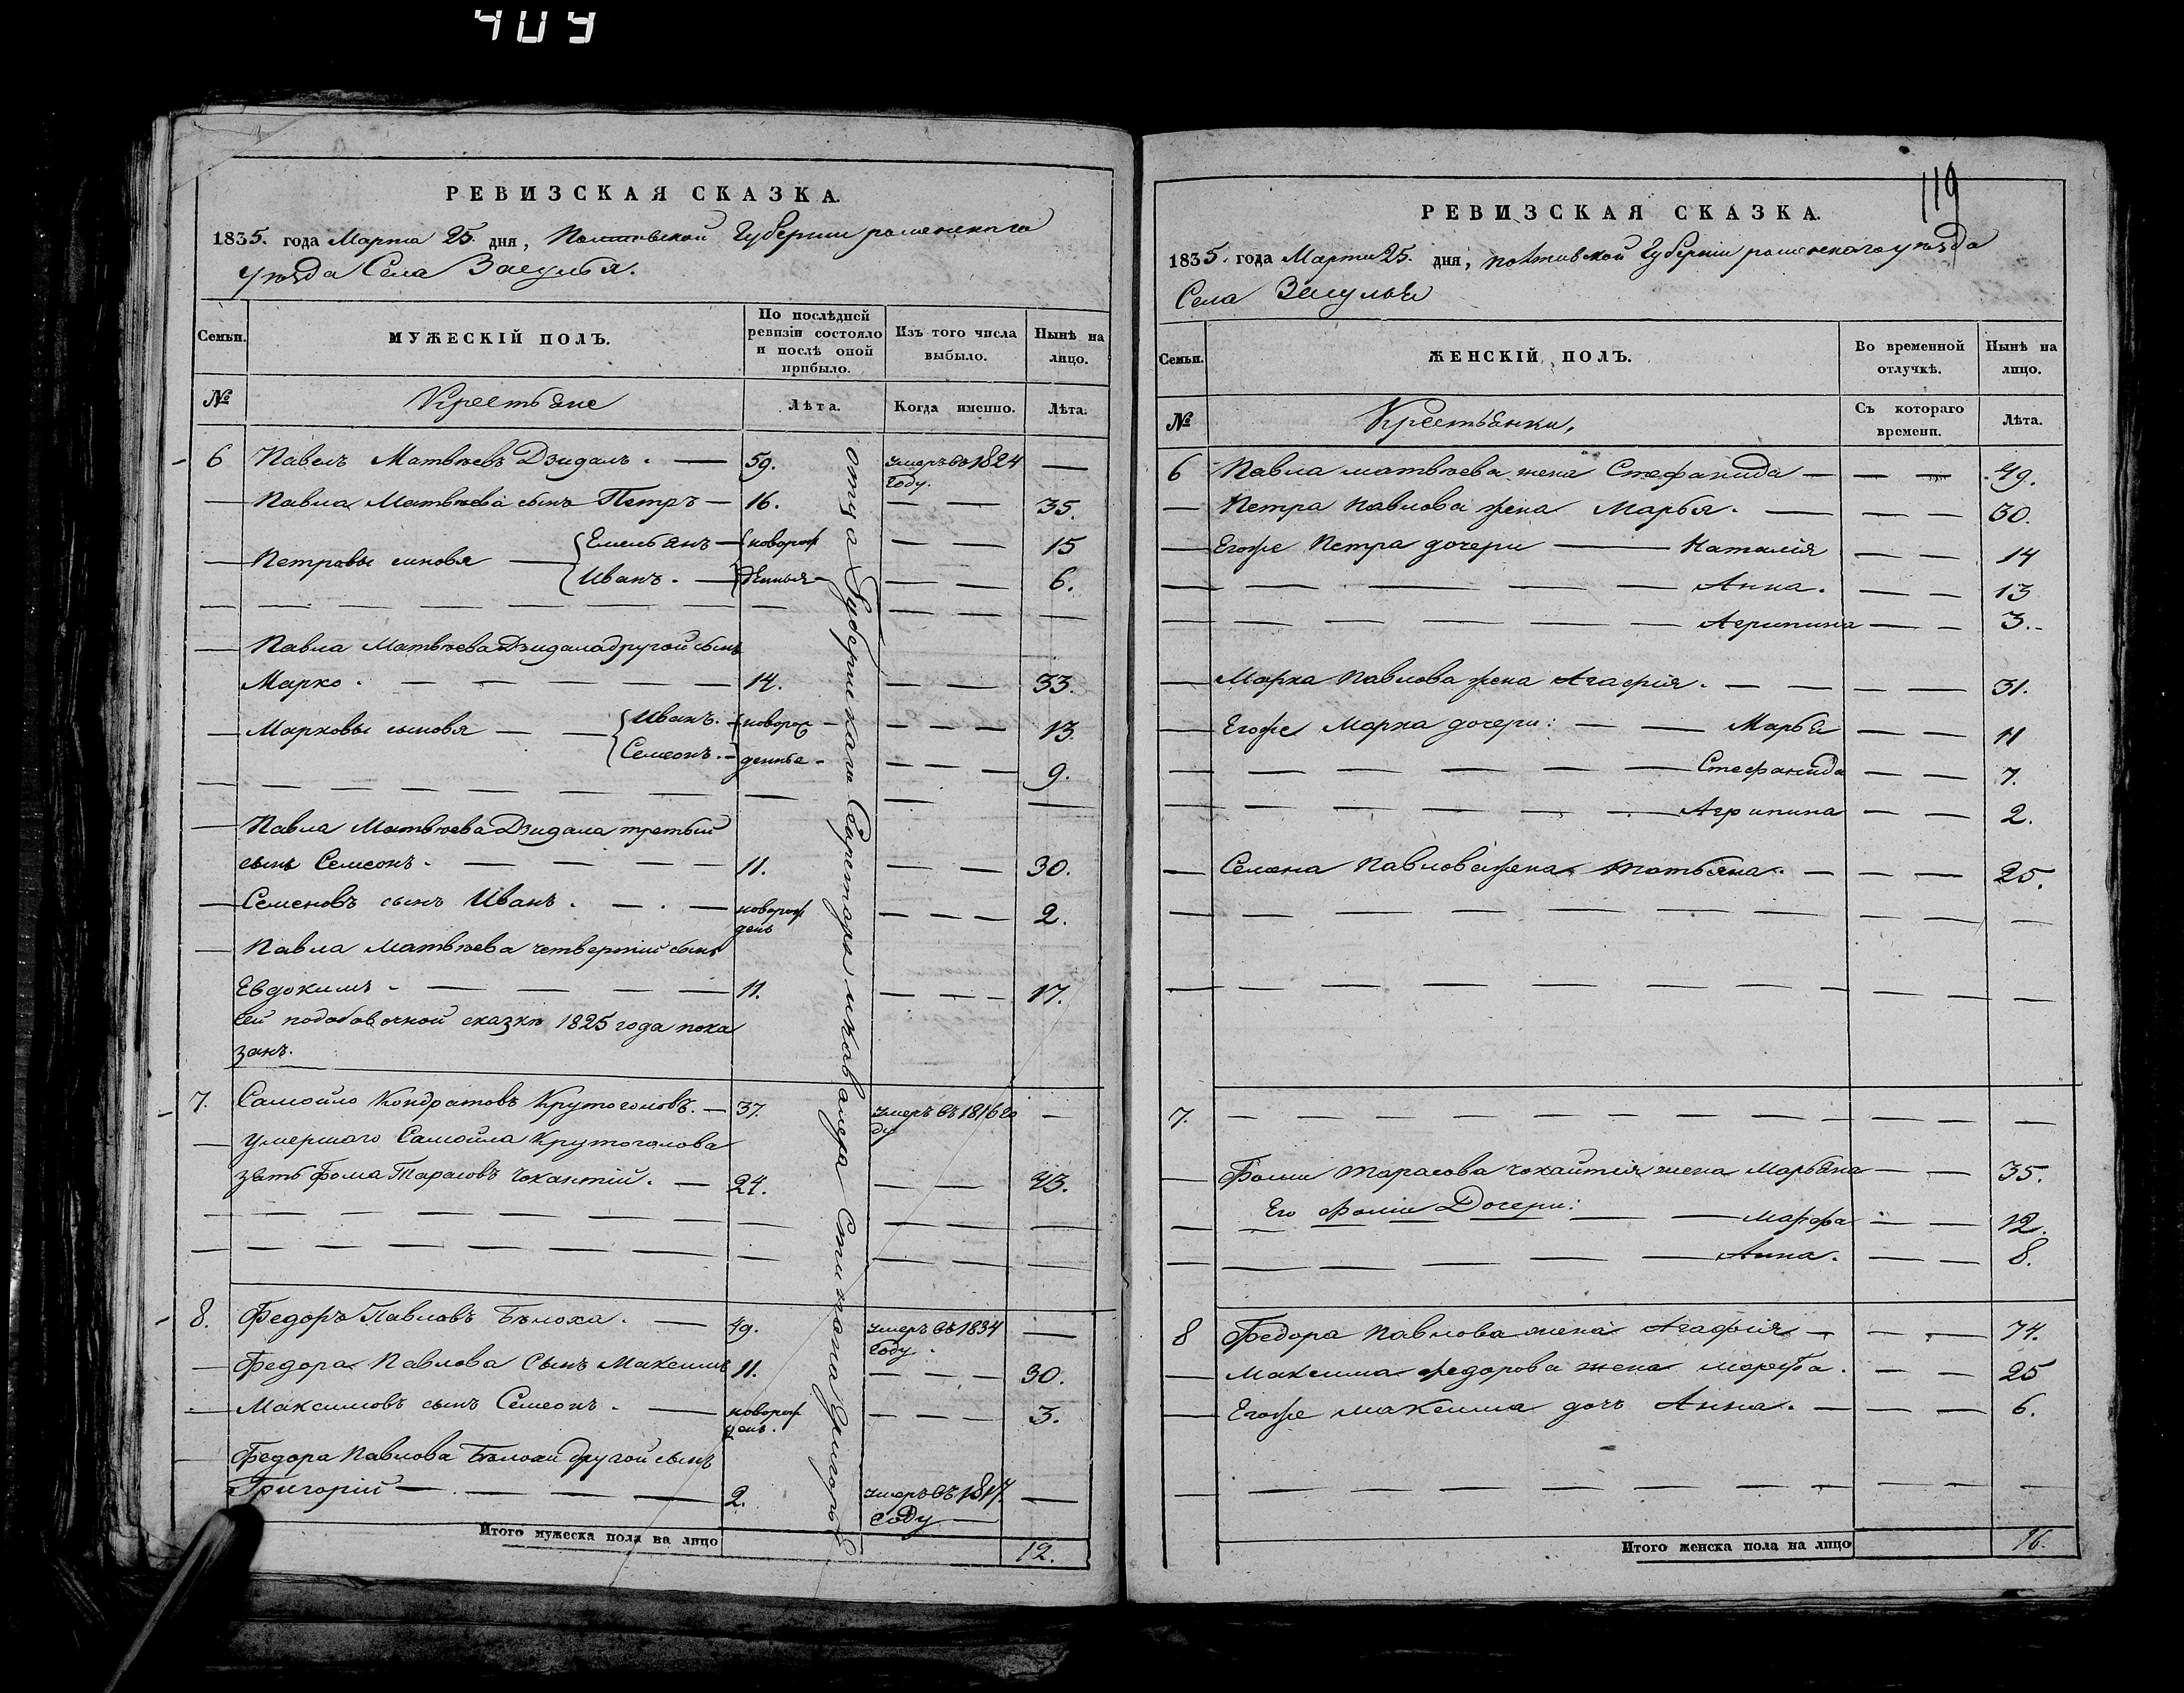 409
РЕВИЗСКАЯ СКАЗКА.
1835. года Марта 25. дня, Полтавской Губернии роменского
уѣзда Села Засулья.
Семьи.
МУЖЕСКІЙ ПОЛЪ.
По послѣдней ревизіи состояло и послѣ оной прибыло.
Изъ того числа выбыло.
Нынѣ на лицо.
№
Крестьяне
Лѣта.
Когда именно.
Лѣта.
6 Павелъ Матвѣевъ Дзигалъ. — 59. умеръ въ 1824 Году. —
Павла Матвѣева сынъ Петръ — 16. — — 35.
Петровы сыновя — Емельянъ — новорож — — 15
Иванъ. — денныя — — 6.
Павла Матвѣева Дзигала другой сынъ
Марко. — 14. — — 33.
Марковы сыновя — — Иванъ. — новорож — — — 13.
Семеонъ. — денныя — — — 9.
Павла Матвѣева Дзигала третьий
сынъ Семеонъ. — 11. — — 30.
Семеновъ сынъ Иванъ. — новорож день — — — 2.
Павла Матвѣева четвертій сынъ
Евдокимъ — 11. — — — 17.
сей подобовочной сказкѣ 1825 года пока
занъ.
7. Самойло Кондратовъ Крутоголовъ. — 37. умеръ въ 1816 го ду —
умершаго Самойла Крутоголова
зять Фома Тарасовъ Чохантій. — 24. — — 43.
8. Федоръ Павловъ Бѣлоха. — 49. умеръ въ 1834 Году. —
Федора Павлова Сынъ Максимъ 11. — — — 30.
Максимовъ сынъ Семеонъ. — новорож день. — — — 3.
Федора Павлова Бѣлохи другой сынъ
Григорій — 2. умеръ въ 1817. Году —
Итого мужеска пола на лицо 12.
отца Губернскаго Секретаря и Кавалера Степана Григорье
119
РЕВИЗСКАЯ СКАЗКА.
1835. года Марта 25. дня, полтавской Губерніи роменского уѣзда
Села Засулья
Семьи.
ЖЕНСКІЙ ПОЛЪ.
Во временной отлучкѣ.
Нынѣ на лицо.
№
Крестьянки,
Съ котораго времени.
Лѣта.
6 Павла матвѣева жена Стефанида — — — 49.
Петра Павлова жена Марья. — — — 30.
Егоже Петра дочери — Наталія — — 14
Анна. — — 13
Агрипина — — 3.
Марка Павлова жена Агафія. — — — — 31.
Егоже Марка дочери: — — Марья — — 11
Стефанида — — 7.
Агрипина — — 2.
Семена Павлова жена Татьяна. — — — 25.
7.
Фомы Тарасова чохантія жена Марьяна — — 35.
Его Фомы Дочери: — — Марфа — — 12.
Анна. — — 8.
8 Федора Павлова жена Агафія — — — 74.
Максима федорова жена марфа. — — 25
Егоже Максима дочъ Анна. — — — 6.
Итого женска пола на лицо 16.